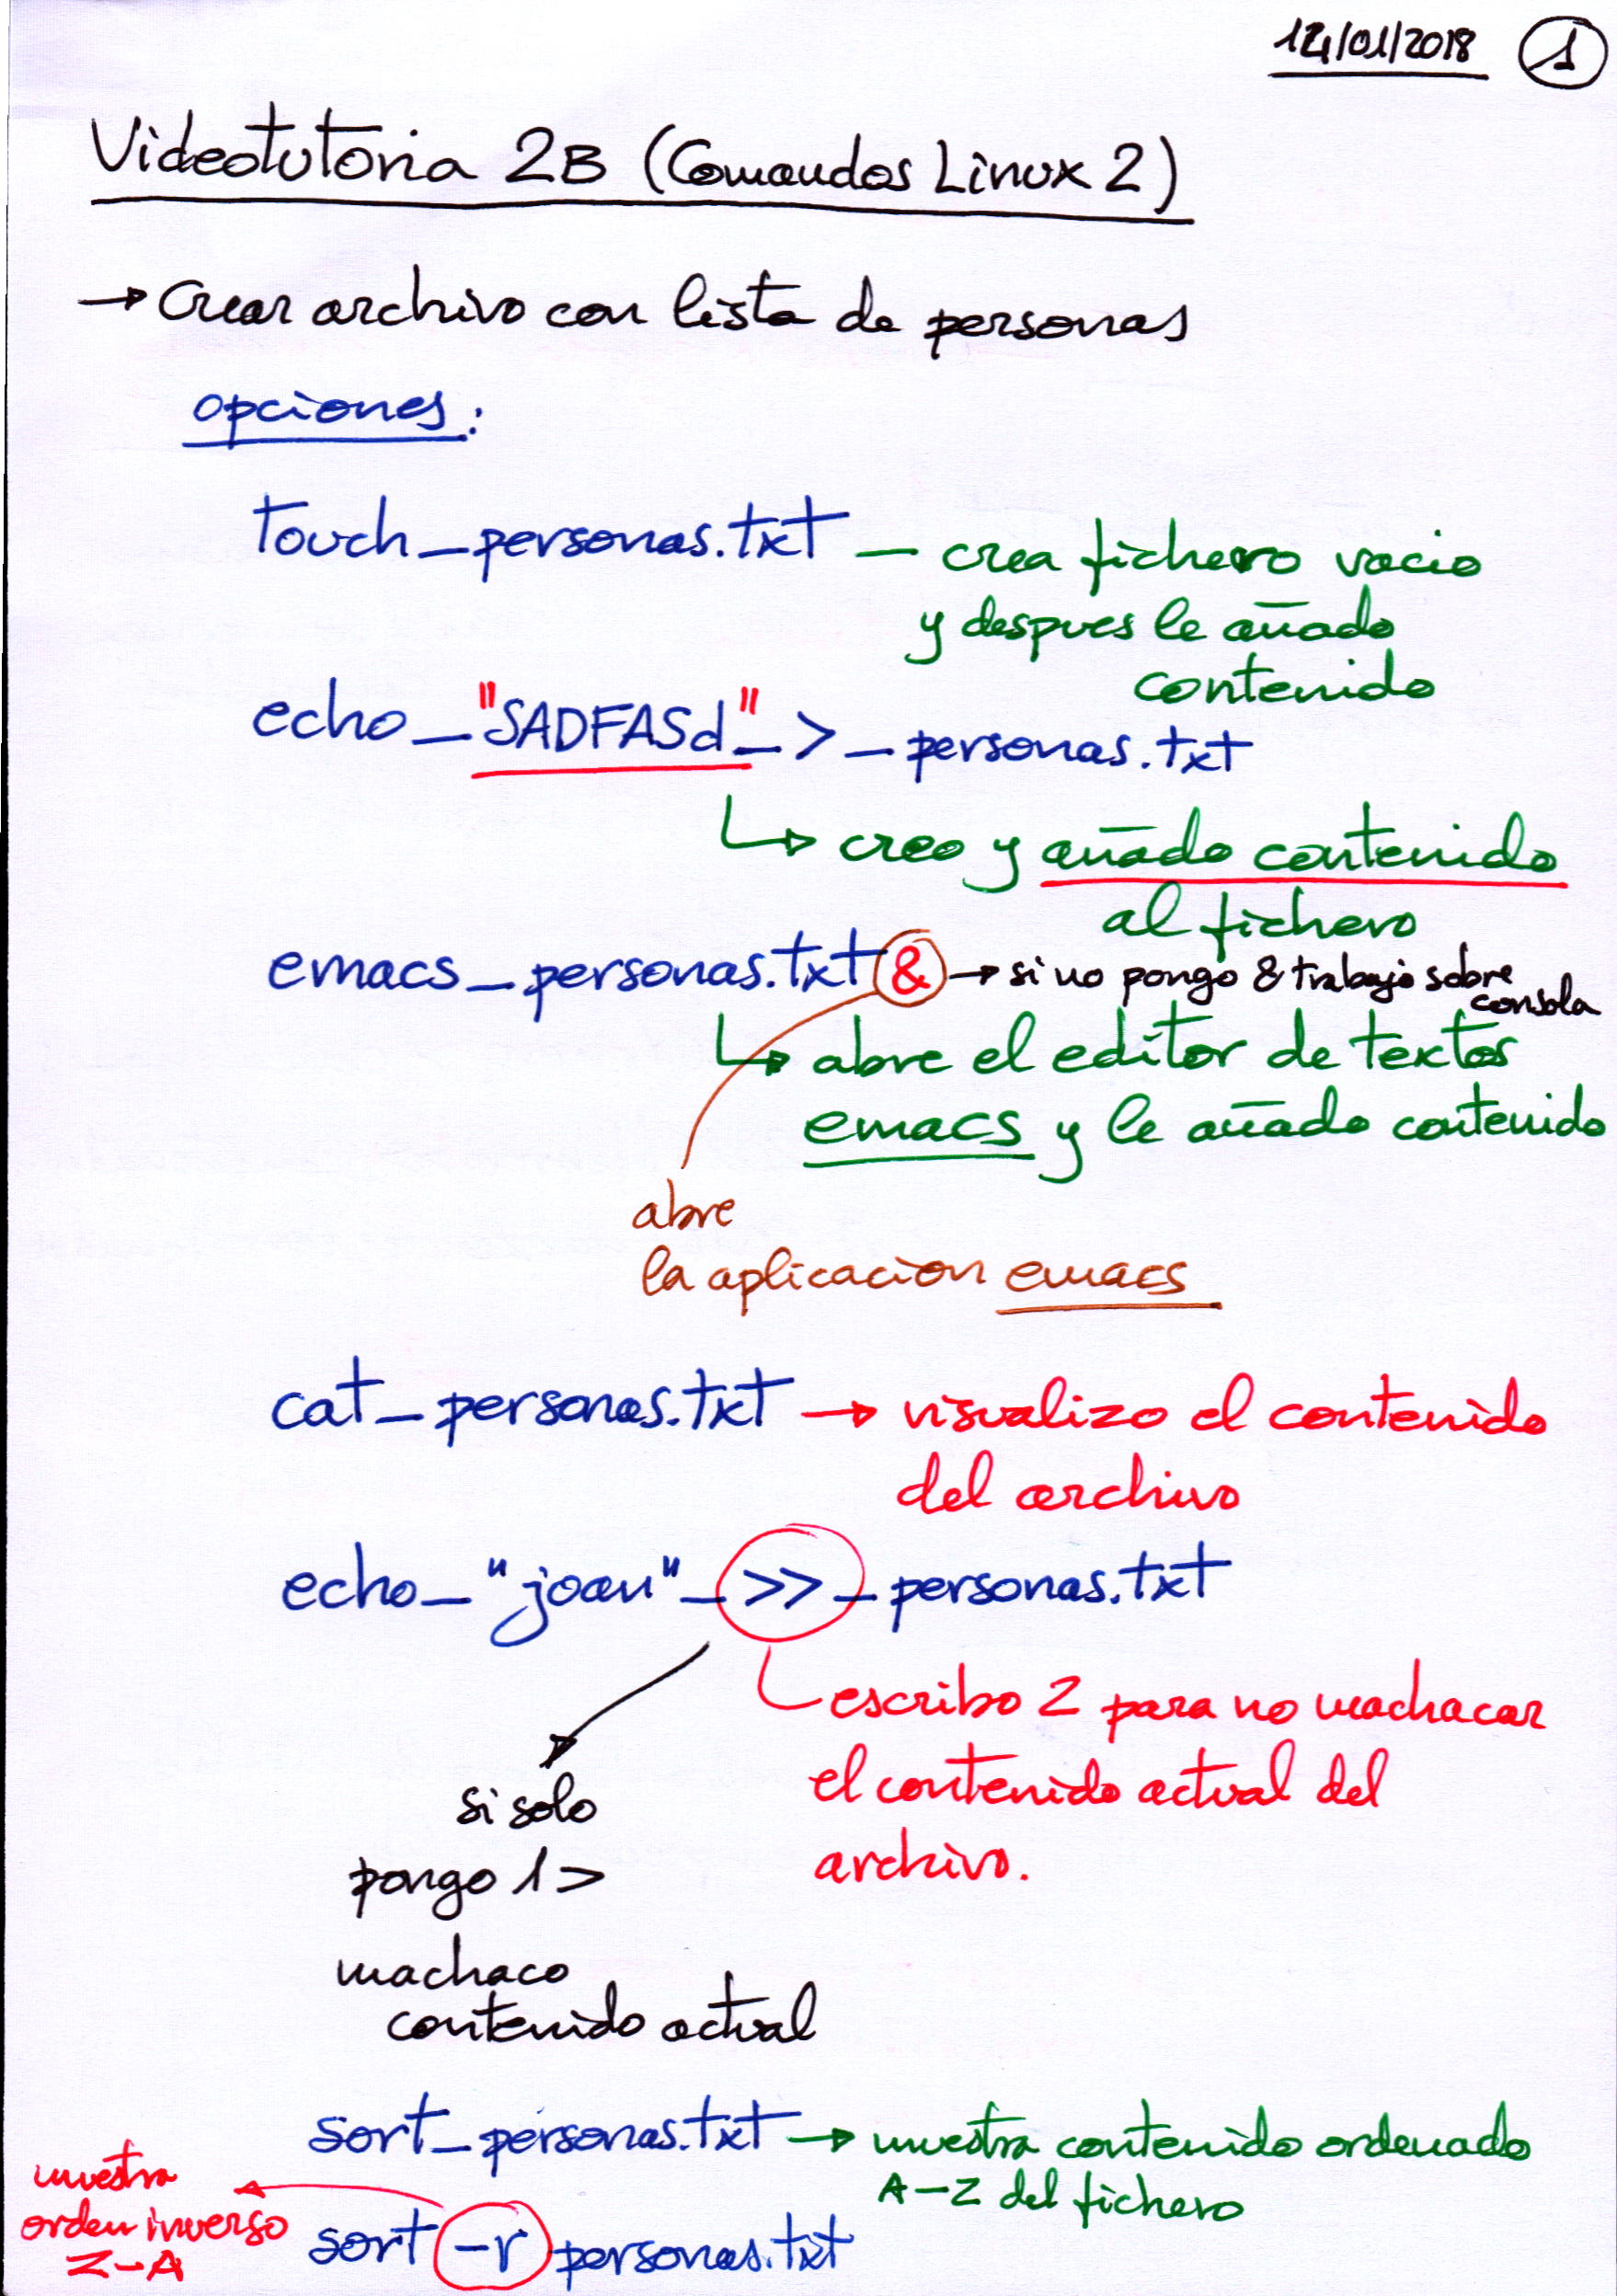 14/01/2018 1
Videotutoria 2B (Comandos Linux 2)
→ Crear archivo con lista de personas
opciones:
touch_personas.txt — crea fichero vacio
y despues le añado
contenido
echo_"SADFASd"_>_personas.txt
↳ creo y añado contenido
al fichero
emacs_personas.txt & → si no pongo & trabajo sobre
consola
↳ abre el editor de textos
emacs y le añado contenido
abre
la aplicacion emacs
cat_personas.txt → visualizo el contenido
del archivo
echo_"joan"_>>_personas.txt
escribo 2 para no machacar
el contenido actual del
archivo.
si solo
pongo 1 >
machaco
contenido actual
sort_personas.txt → muestra contenido ordenado
A-Z del fichero
muestra
orden inverso
Z-A
sort -r personas.txt